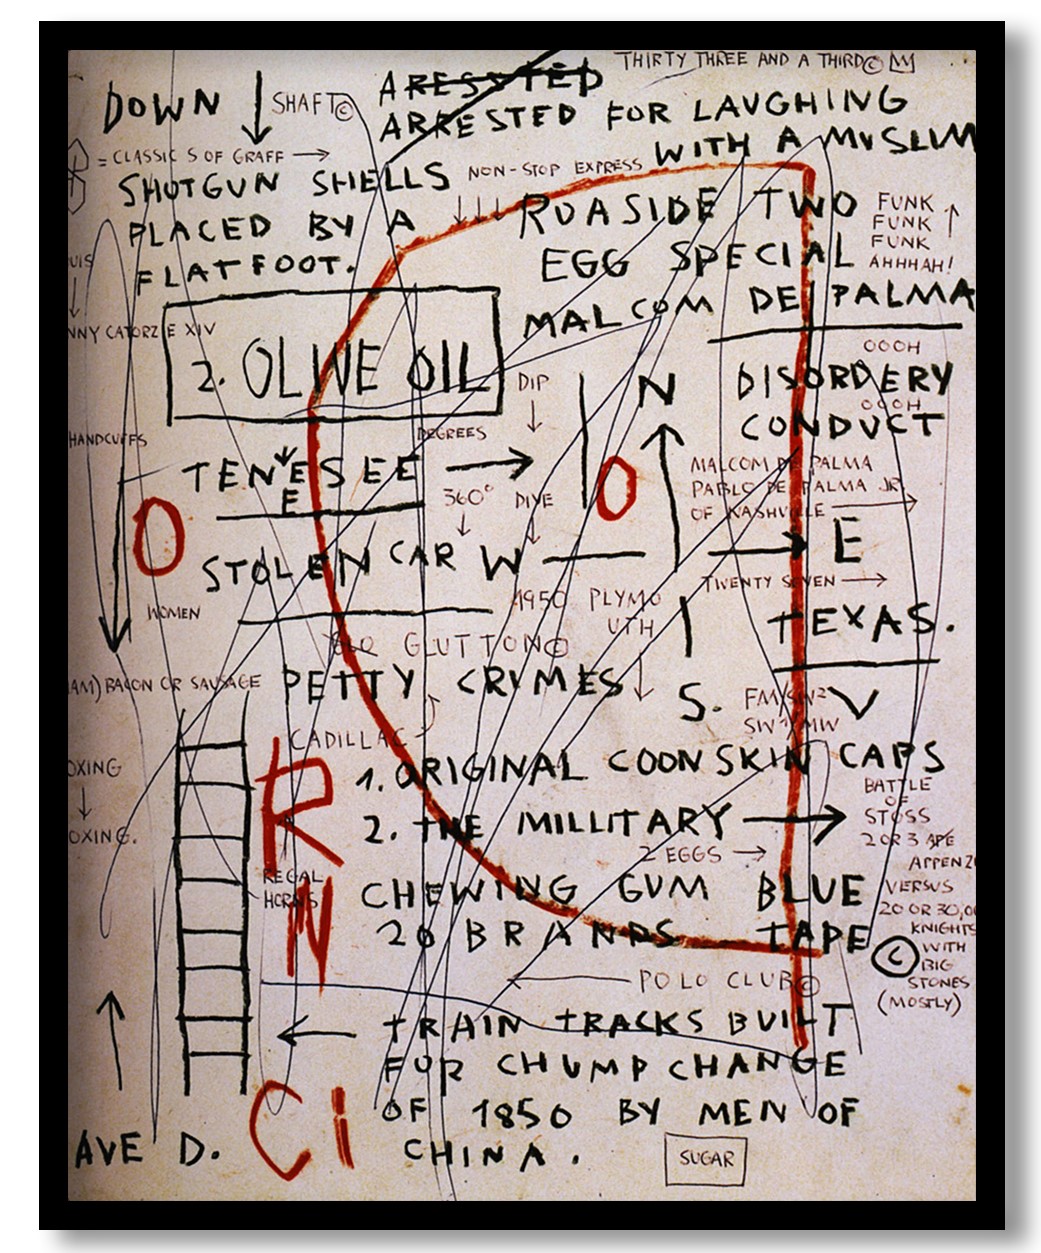 THIRTY THREE AND A THIRD©
DOWN
SHAFT©
ARESSTED
ARRESTED FOR LAUGHING
WITH A MUSLIM
= CLASSIC S OF GRAFF →
NON-STOP EXPRESS
SHOTGUN SHELLS
PLACED BY A
FLATFOOT.
ROASIDE TWO
EGG SPECIAL
MALCOM DE PALMA
FUNK
FUNK
FUNK
AHHHAH!
UIS
NNY CATORZIE XIV
2. OLIVE OIL
DIP
N
OOOH
DISORDERY
OOOH
CONDUCT
HANDCUFFS
DEGREES
TENESEE →
E
360°
DIVE
O
MALCOM DE PALMA
PABLO DE PALMA JR
OF NASHVILLE →
O
STOLEN CAR
W
→ E
TWENTY SEVEN →
WOMEN
1950 PLYMO
UTH
TEXAS.
GLUTTON©
AM) BACON OR SAUSAGE
PETTY CRIMES
S.
FM/SW2
SW1/MW
V
CADILLAC
OXING
OXING.
R
N
1. ORIGINAL COONSKIN CAPS
2. THE MILLITARY →
2 EGGS →
BATTLE
OF
STOSS
2 OR 3 APE
APPENZ
VERSUS
20 OR 30,00
KNIGHTS
WITH
BIG
STONES
(MOSTLY)
REGAL
HORNS
CHEWING GUM BLUE
20 BRANDS TAPE
©
POLO CLUB©
← TRAIN TRACKS BUILT
FOR CHUMP CHANGE
OF 1850 BY MEN OF
CHINA.
Ci
AVE D.
SUGAR